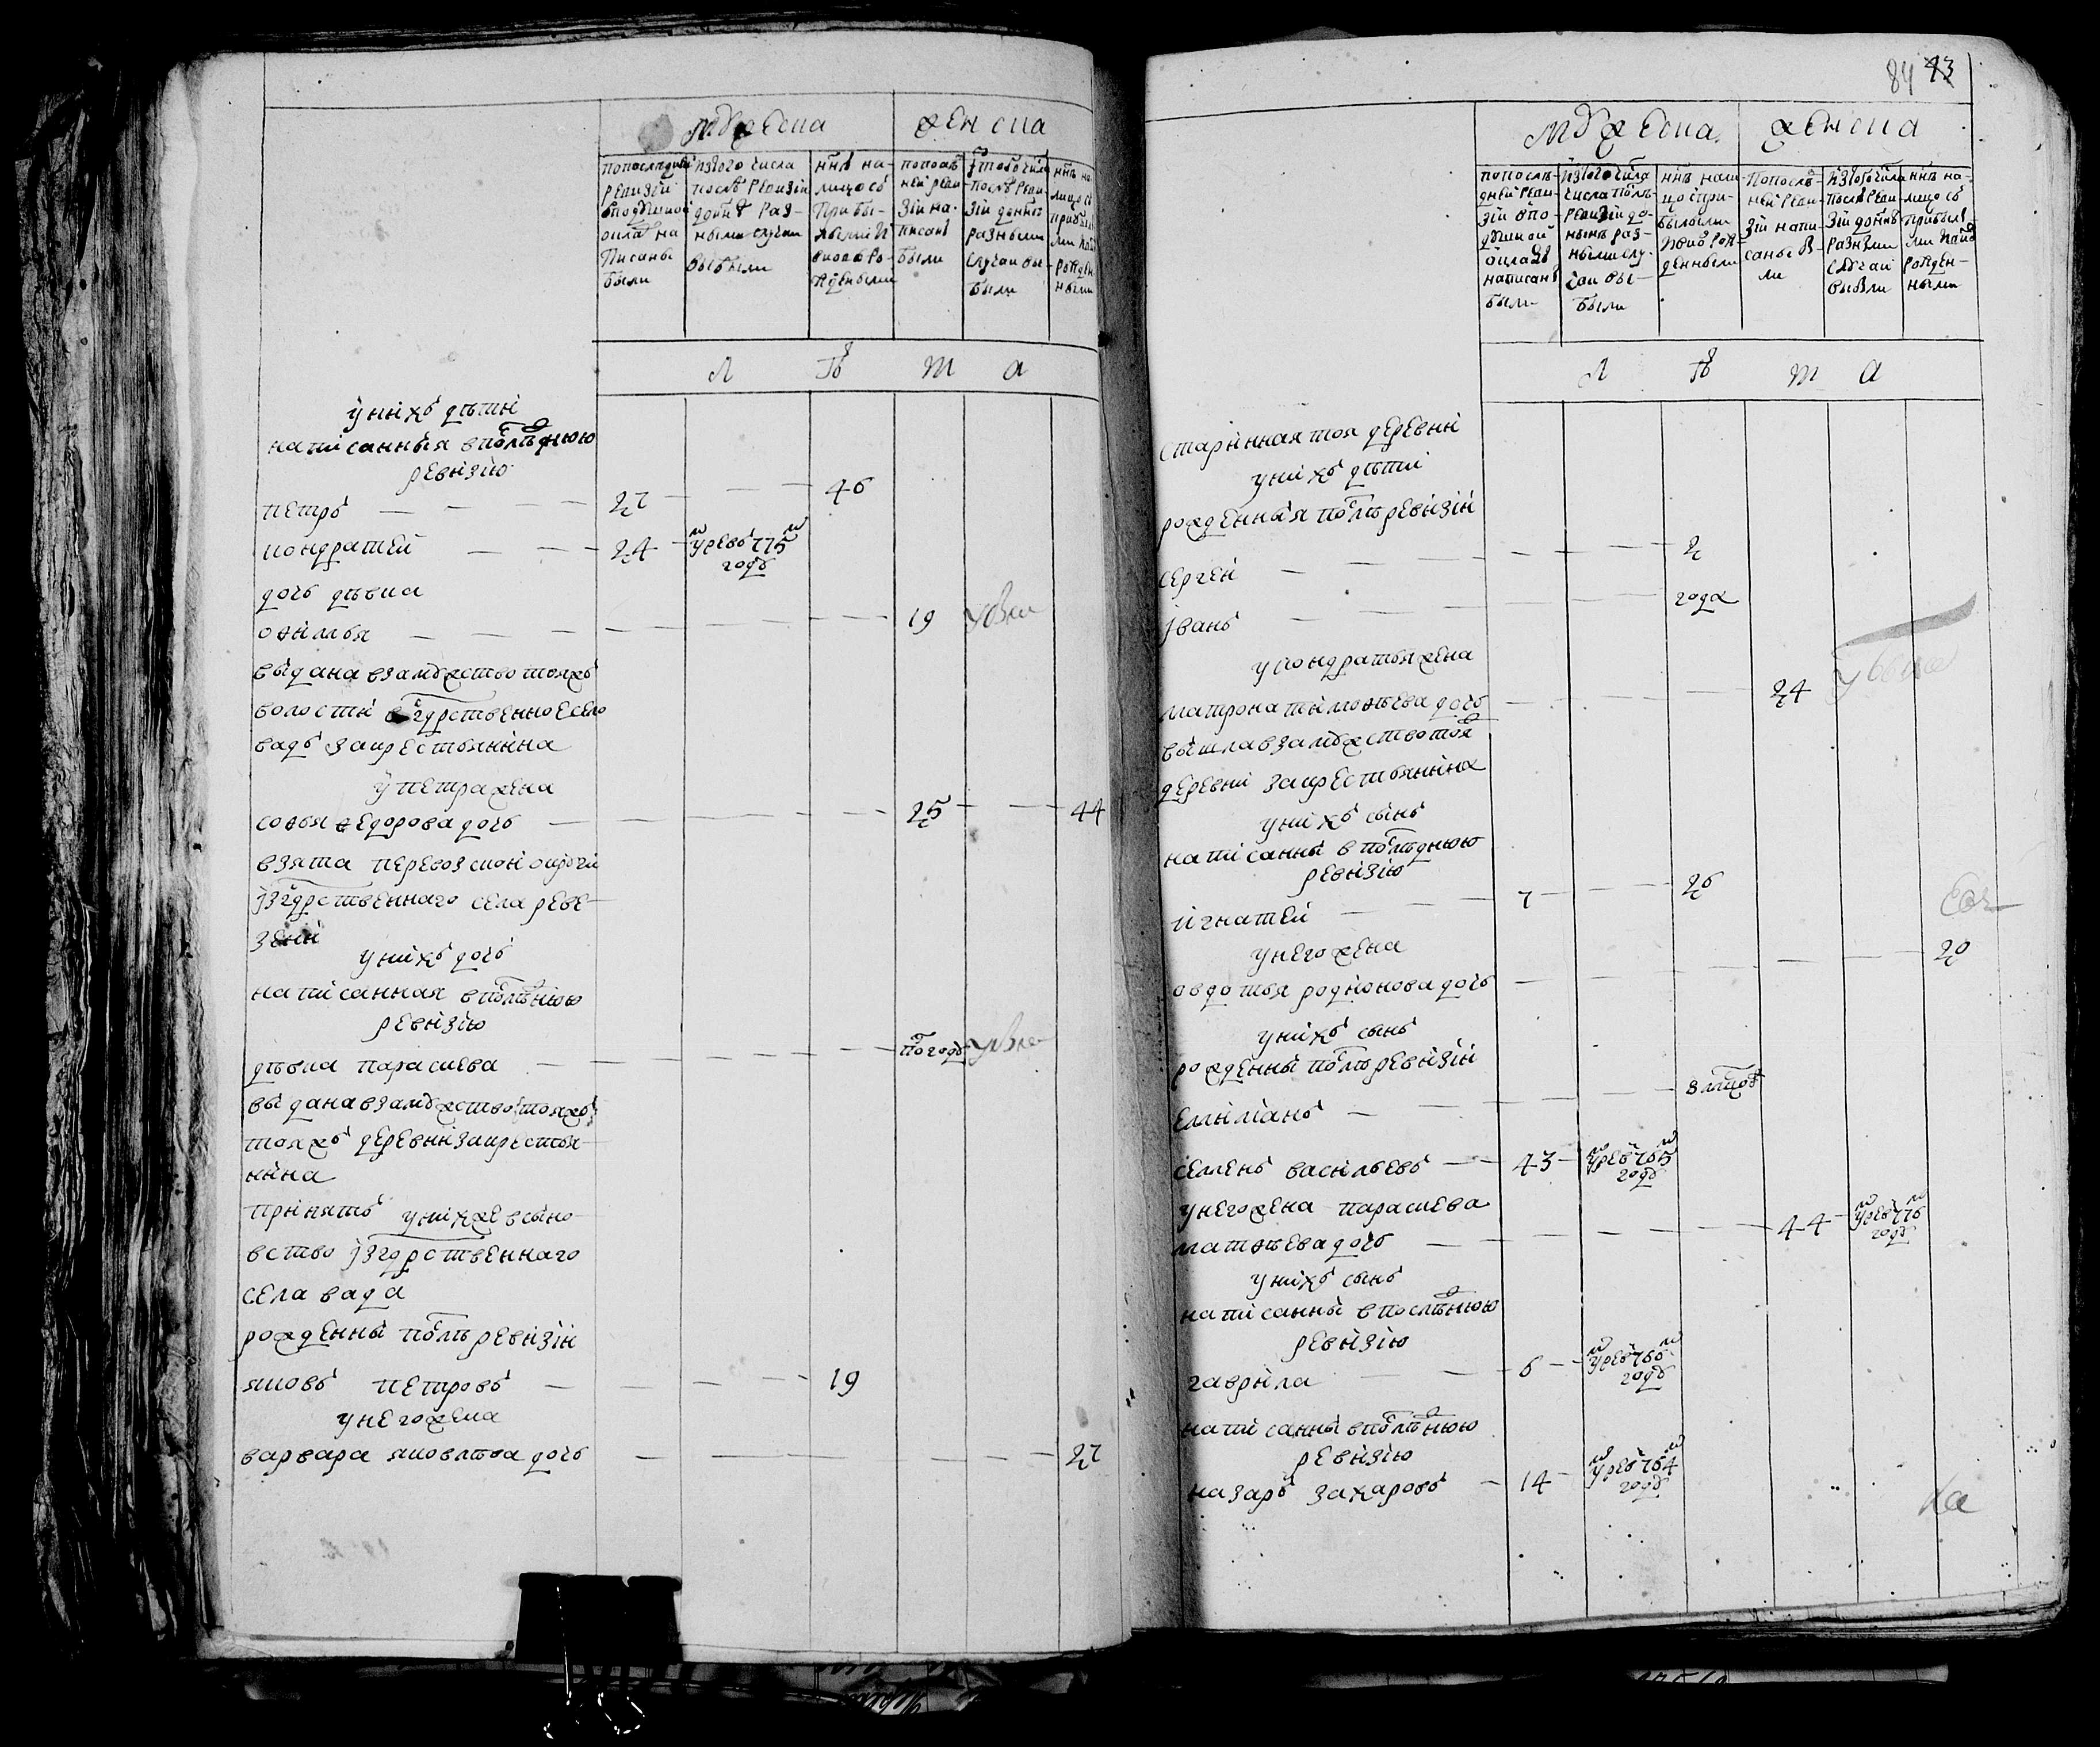 мужеска
женска
попоследней ревизии вподушной окладъ написаны были
изтого числа послѣ ревизии донне разными случаи выбыли
ннѣ налицо съ прибылыми и вновь рожденными
попослѣдней ревизии написаны были
изтого числа послѣ ревизии донне разными случаи выбыли
ннѣ налицо съ прибылыми и вновь рожденными
лѣта
у нихъ дѣти
написанныя впослѣднюю
ревизию
петръ 27 46
кондратей 24 умре в 775м
году
дочь дѣвка
офимья 19
выдана взамужство тояжъ
волости в гдрственное село
вадъ закрестьянина
у петра жена
софья федорова дочь 25 44
взята перевозской округи
изгдрственнаго села реве
зени
у нихъ дочь
написанная впослѣднюю
ревизию
дѣвка парасковя полгоду
выдана взамужство тояжъ
тояжъ деревни закрестья
нина
принятъ у нихже всыно
вство изгдрственнаго
села вада
рожденны послѣ ревизии
яковъ петровъ 19
у него жена
варвара яковлева дочь 27
84 43
мужеска
женска
попослѣдней ревизии вподушной окладъ написаны были
изтого числа послѣ ревизии донынѣ разными случаи выбыли
ннѣ налицо сприбылыми и вновь рожденными
попослѣдней ревизии написаны были
изтого числа послѣ ревизии донне разными случаи выбыли
ннѣ налицо съ прибылыми и вновь рожденными
лѣта
старинная тоя деревни
у нихъ дѣти
рожденныя послѣ ревизии
сергей 2
иванъ года
у кондратья жена
матрона тимофѣева дочь 24 убыла
вышла взамужство тоя
деревни закрестьянина
у нихъ сынъ
написанны впослѣднюю
ревизию
игнатей 7 26
у него жена
овдотья родионова дочь 20
у нихъ сынъ
рожденны послѣ ревизии
емилианъ 8 мцов
семенъ васильевъ 43 умре в 765м
году
у него жена парасковя
матфѣева дочь 44 умре в 776м
году
у нихъ сынъ
написанны впослѣднюю
ревизию
гаврила 6 умре в 766м
году
написанны впослѣднюю
ревизию
назаръ захаровъ 14 умре в 764м
году
ка